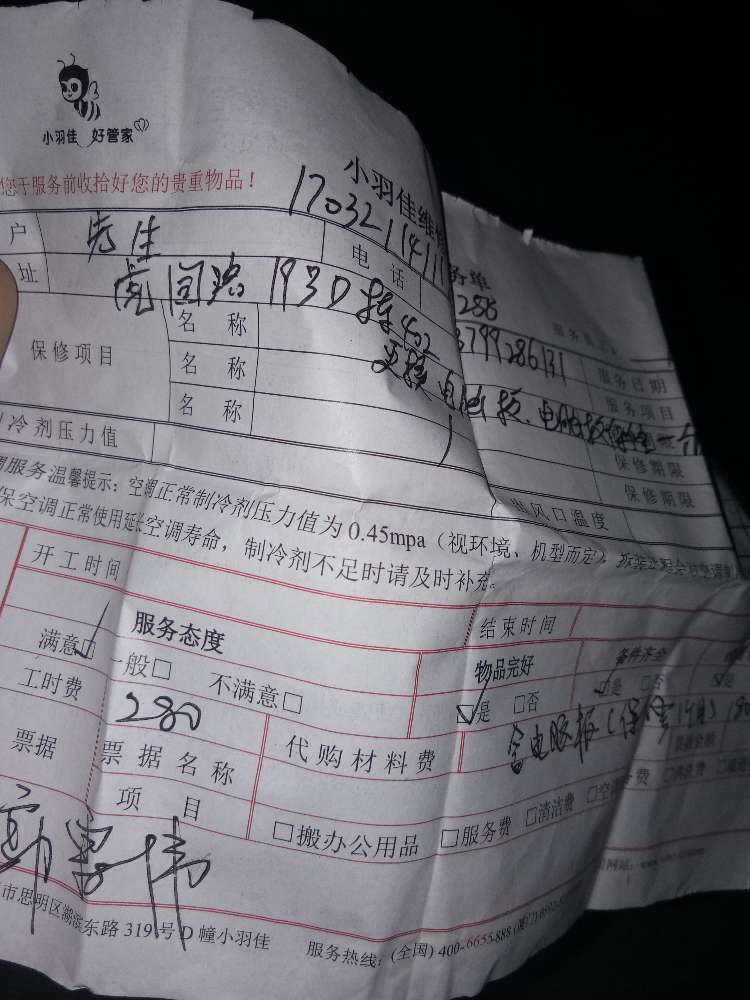 小羽佳 好管家
您于服务前收拾好您的贵重物品！
小羽佳维
务单
17032114111
户 先生 电话 3799286131 服务日期
址 虎园路193D楼402
服务项目
保修项目 名称 更换电脑板、电脑板保修一个
名称 保修期限
名称 保修期限
冷剂压力值 出风口温度
服务温馨提示：空调正常制冷剂压力值为 0.45mpa（视环境、机型而定），
保空调正常使用延长空调寿命，制冷剂不足时请及时补充。
开工时间 结束时间
服务态度 物品完好 备件齐全
满意☑ 一般□ 不满意□ ☑是 □否 ☑是 □否 是
工时费 280 代购材料费 含电脑板(保修1个月)
票据 票据名称 票据金额
项目 □搬办公用品 □服务费 □清洁费 □空调 费 □
市思明区湖滨东路 319 号 D 幢小羽佳 服务热线：(全国) 400-6655-888
网站：